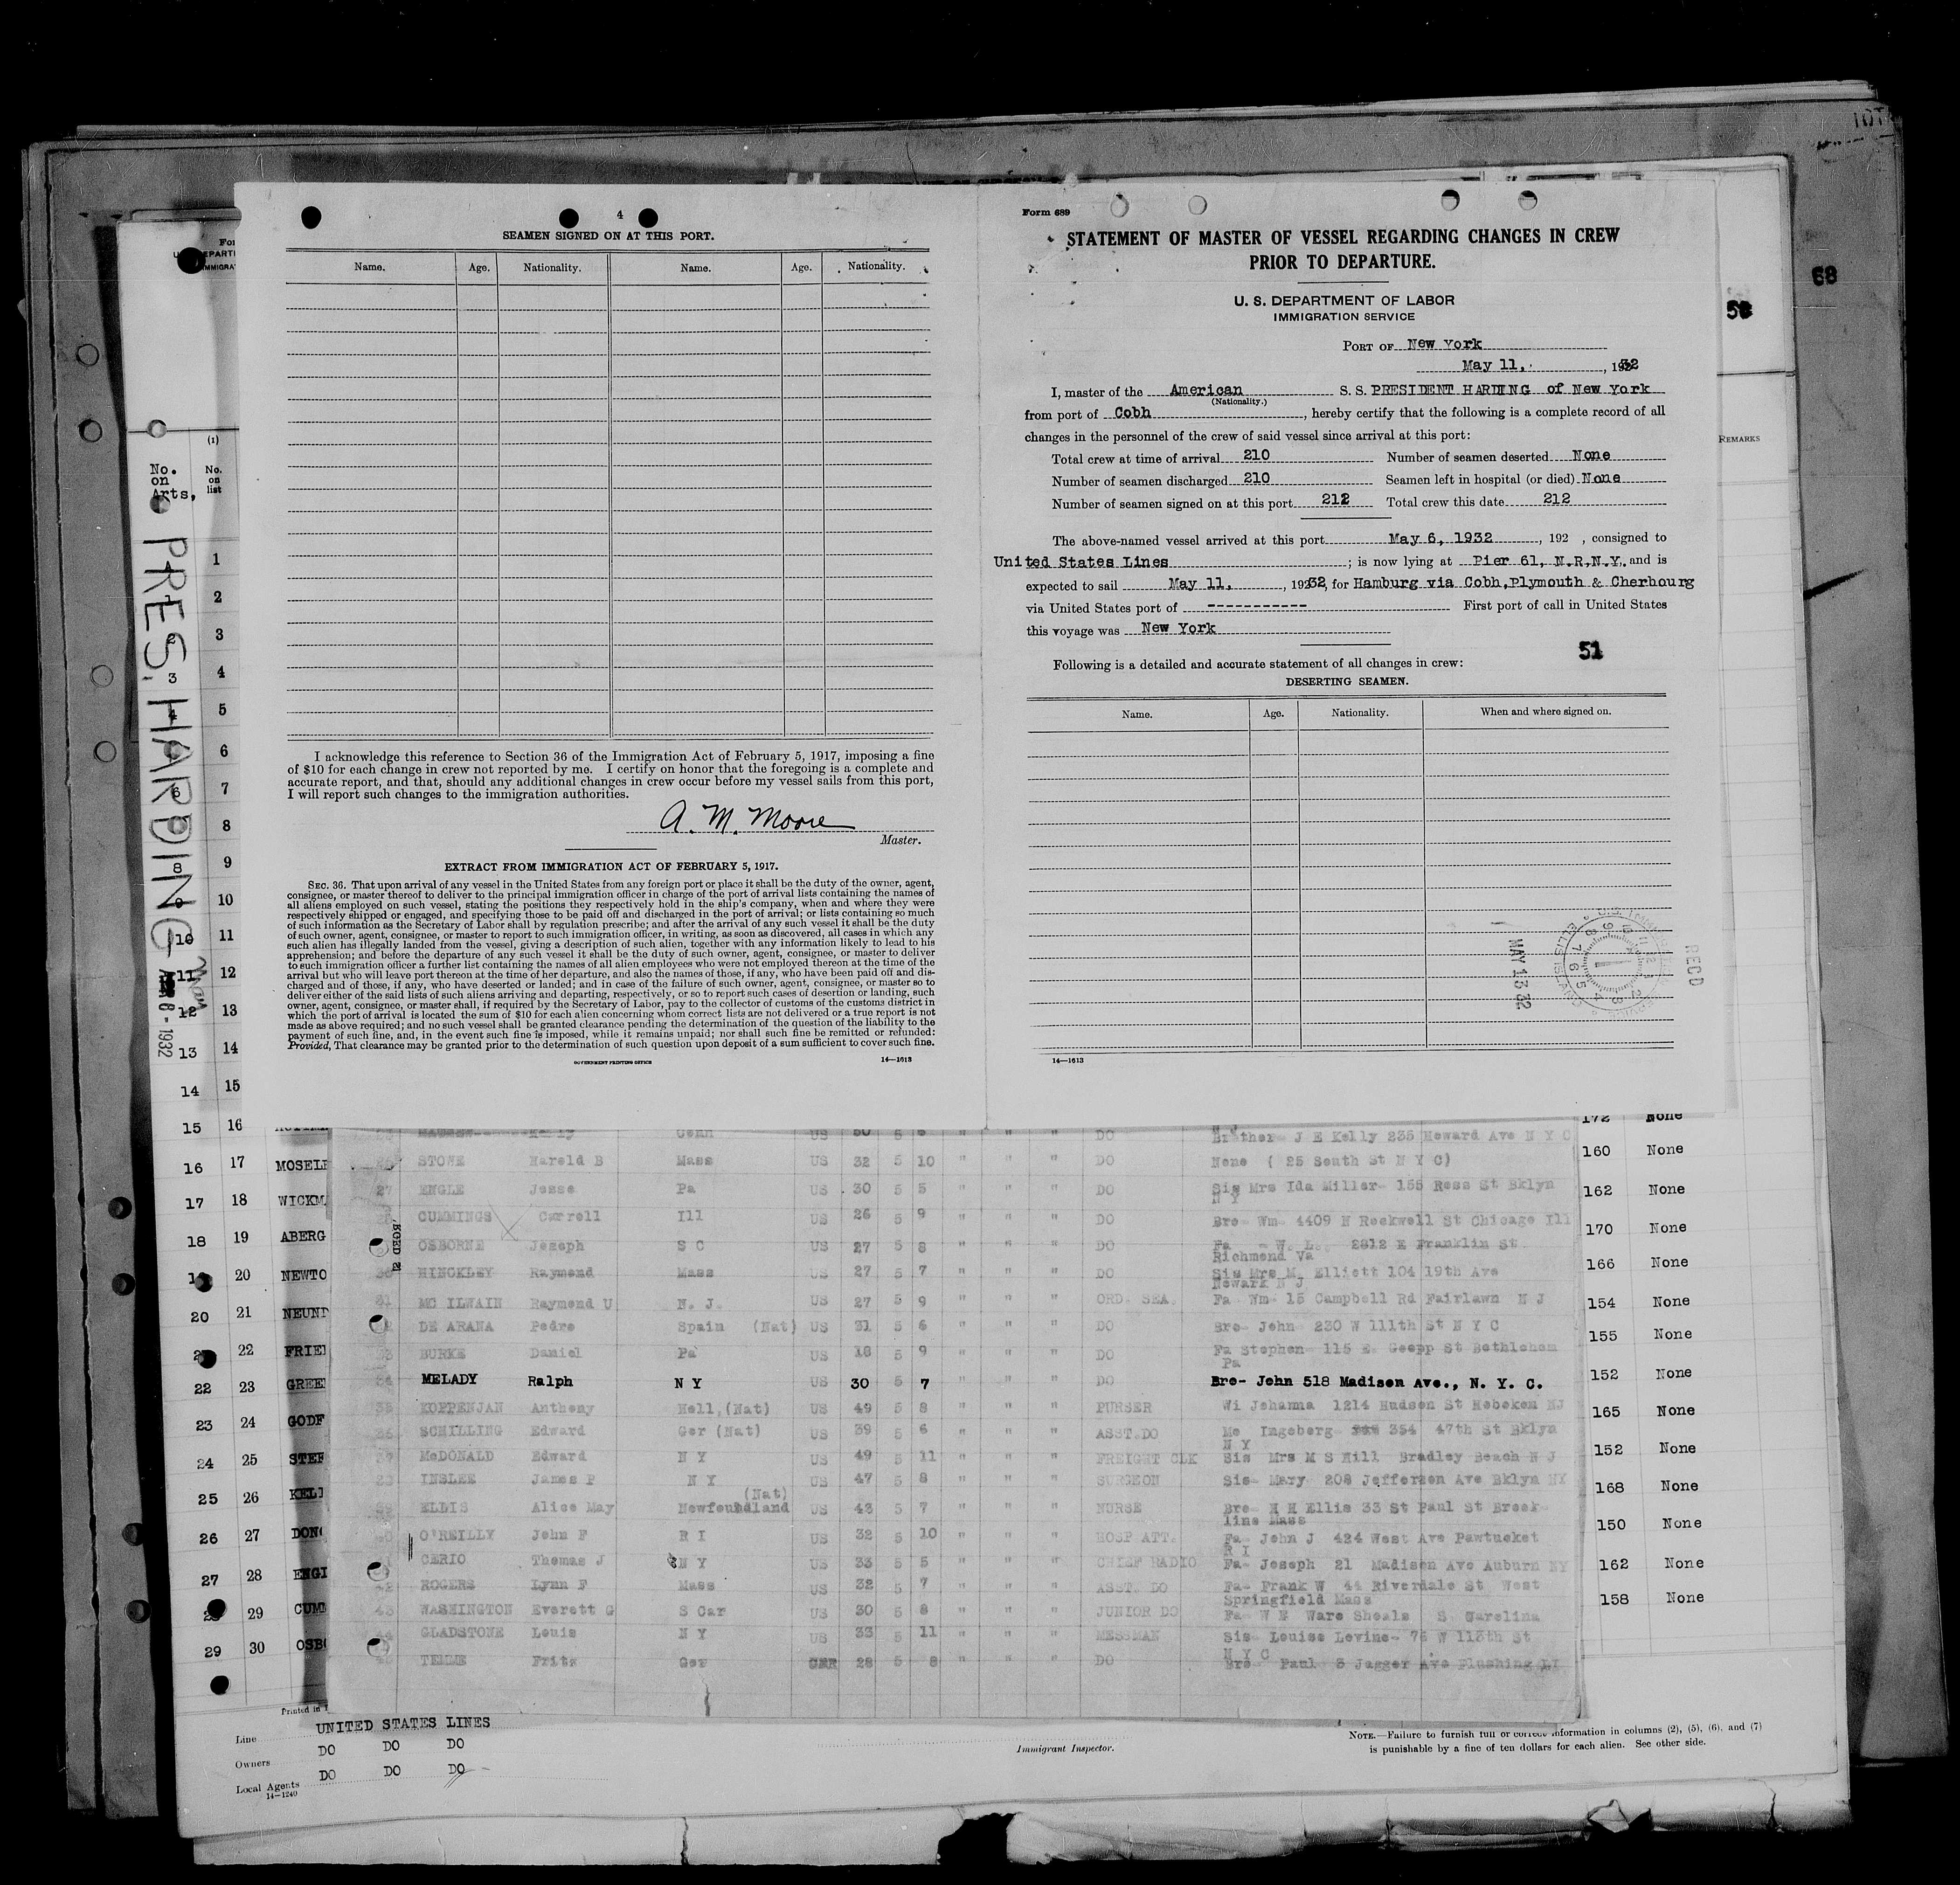 4
SEAMEN SIGNED ON AT THIS PORT.
Name. Age. Nationality. Name. Age. Nationality.
I acknowledge this reference to Section 36 of the Immigration Act of February 5, 1917, imposing a fine
of $10 for each change in crew not reported by me. I certify on honor that the foregoing is a complete and
accurate report, and that, should any additional changes in crew occur before my vessel sails from this port,
I will report such changes to the immigration authorities.
A. M. Moore
Master.
EXTRACT FROM IMMIGRATION ACT OF FEBRUARY 5, 1917.
SEC. 36. That upon arrival of any vessel in the United States from any foreign port or place it shall be the duty of the owner, agent,
consignee, or master thereof to deliver to the principal immigration officer in charge of the port of arrival lists containing the names of
all aliens employed on such vessel, stating the positions they respectively hold in the ship's company, when and where they were
respectively shipped or engaged, and specifying those to be paid off and discharged in the port of arrival; or lists containing so much
of such information as the Secretary of Labor shall by regulation prescribe; and after the arrival of any such vessel it shall be the duty
of such owner, agent, consignee, or master to report to such immigration officer, in writing, as soon as discovered, all cases in which any
such alien has illegally landed from the vessel, giving a description of such alien, together with any information likely to lead to his
apprehension; and before the departure of any such vessel it shall be the duty of such owner, agent, consignee, or master to deliver
to such immigration officer a further list containing the names of all alien employees who were not employed thereon at the time of the
arrival but who will leave port thereon at the time of her departure, and also the names of those, if any, who have been paid off and dis-
charged and of those, if any, who have deserted or landed; and in case of the failure of such owner, agent, consignee, or master so to
deliver either of the said lists of such aliens arriving and departing, respectively, or so to report such cases of desertion or landing, such
owner, agent, consignee, or master shall, if required by the Secretary of Labor, pay to the collector of customs of the customs district in
which the port of arrival is located the sum of $10 for each alien concerning whom correct lists are not delivered or a true report is not
made as above required; and no such vessel shall be granted clearance pending the determination of the question of the liability to the
payment of such fine, and, in the event such fine is imposed, while it remains unpaid; nor shall such fine be remitted or refunded:
Provided, That clearance may be granted prior to the determination of such question upon deposit of a sum sufficient to cover such fine.
GOVERNMENT PRINTING OFFICE 14—1613
Form 689
STATEMENT OF MASTER OF VESSEL REGARDING CHANGES IN CREW
PRIOR TO DEPARTURE.
U. S. DEPARTMENT OF LABOR
IMMIGRATION SERVICE
PORT OF New York
May 11, , 1932
I, master of the American S. S. PRESIDENT HARDING of New York
(Nationality.)
from port of Cobh , hereby certify that the following is a complete record of all
changes in the personnel of the crew of said vessel since arrival at this port:
Total crew at time of arrival 210 Number of seamen deserted None
Number of seamen discharged 210 Seamen left in hospital (or died) None
Number of seamen signed on at this port 212 Total crew this date 212
The above-named vessel arrived at this port May 6, 1932 , 192 , consigned to
United States Lines ; is now lying at Pier 61, N.R.N.Y. and is
expected to sail May 11, , 1932, for Hamburg via Cobh,Plymouth & Cherbourg
via United States port of ----------- First port of call in United States
this voyage was New York
51
Following is a detailed and accurate statement of all changes in crew:
DESERTING SEAMEN.
Name. Age. Nationality. When and where signed on.
MAY 13 32
RECD
ELLIS ISLAND
14—1613
68
REMARKS
No.
on
Arts,
(1)
No.
on
list
PRES. HARDING
1932
1
2
2 3
3 4
4 5
6
6 7
8
8 9
9 10
10 11
11 12
12 13
13 14
14 15
15 16 172 None
16 17 MOSEL 160 None
17 18 WICKM 162 None
18 19 ABERG 170 None
19 20 NEWTO 166 None
20 21 NEUND 154 None
22 FRIE 155 None
22 23 GREE 152 None
23 24 GODF 165 None
24 25 STEF 152 None
25 26 KELI 168 None
26 27 DON 150 None
27 28 ENGI 162 None
29 CUM 158 None
29 30 OSBO
US 5 " " " DO Brother- J E Kelly 235 Howard Ave N Y C
26 STONE Harold B Mass US 32 5 10 " " " DO None ( 25 South St N Y C)
27 ENGLE Jesse Pa US 30 5 5 " " " DO Sis Mrs Ida Miller- 155 Ross St Bklyn
N Y
28 CUMMINGS Carroll Ill US 26 5 9 " " " DO Bro- Wm- 4409 N Rockwell St Chicago Ill
OSBORNE Joseph S C US 27 5 8 " " " DO Fa - W. L. 2812 E Franklin St
Richmond Va
30 HINCKLEY Raymond Mass US 27 5 7 " " " DO Sis Mrs M. Elliott 104 19th Ave
Newark N J
31 MC ILWAIN Raymond U N. J. US 27 5 9 " " " ORD. SEA. Fa Wm- 15 Campbell Rd Fairlawn N J
DE ARANA Pedro Spain (Nat) US 31 5 6 " " " DO Bro- John- 230 W 111th St N Y C
33 BURKE Daniel Pa US 18 5 9 " " " DO Fa Stephen- 115 E. Goepp St Bethlehem
Pa
34 MELADY Ralph N Y US 30 5 7 " " " DO Bro- John 518 Madison Ave., N. Y. C.
35 KOPPENJAN Anthony Holl,(Nat) US 49 5 8 " " " PURSER Wi Johanna 1214 Hudson St Hoboken NJ
36 SCHILLING Edward Ger (Nat) US 39 5 6 " " " ASST.DO Mo Ingeborg 354 47th St Bklyn
N Y
37 McDONALD Edward N Y US 49 5 11 " " " FREIGHT CLK Sis Mrs M S Hill Bradley Beach N J
38 INSLEE James P N Y US 47 5 8 " " " SURGEON Sis- Mary 208 Jefferson Ave Bklyn NY
39 ELLIS Alice May Newfoundland (Nat) US 43 5 7 " " " NURSE Bro- H H Ellis 33 St Paul St Brook-
line Mass
40 O'REILLY John F R I US 32 5 10 " " " HOSP ATT. Fa- John J 424 West Ave Pawtucket
R I
CERIO Thomas J N Y US 33 5 5 " " " CHIEF RADIO Fa- Joseph 21 Madison Ave Auburn NY
42 ROGERS Lynn F Mass US 32 5 7 " " " ASST. DO Fa- Frank W 44 Riverdale St West
Springfield Mass
43 WASHINGTON Everett G S Car US 30 5 8 " " " JUNIOR DO Fa- W E Ware Shoals S Carolina
44 GLADSTONE Louis N Y US 33 5 11 " " " MESSMAN Sis- Louise Levine- 76 W 113th St
N Y C
TEMME Fritz Ger GER 28 5 8 " " " DO Bro- Paul 3 Jagger Ave Flushing LI
Printed in
Line UNITED STATES LINES
Owners DO DO DO
Local Agents DO DO DO
14—1240
Immigrant Inspector.
NOTE.—Failure to furnish full or correct information in columns (2), (5), (6), and (7)
is punishable by a fine of ten dollars for each alien. See other side.